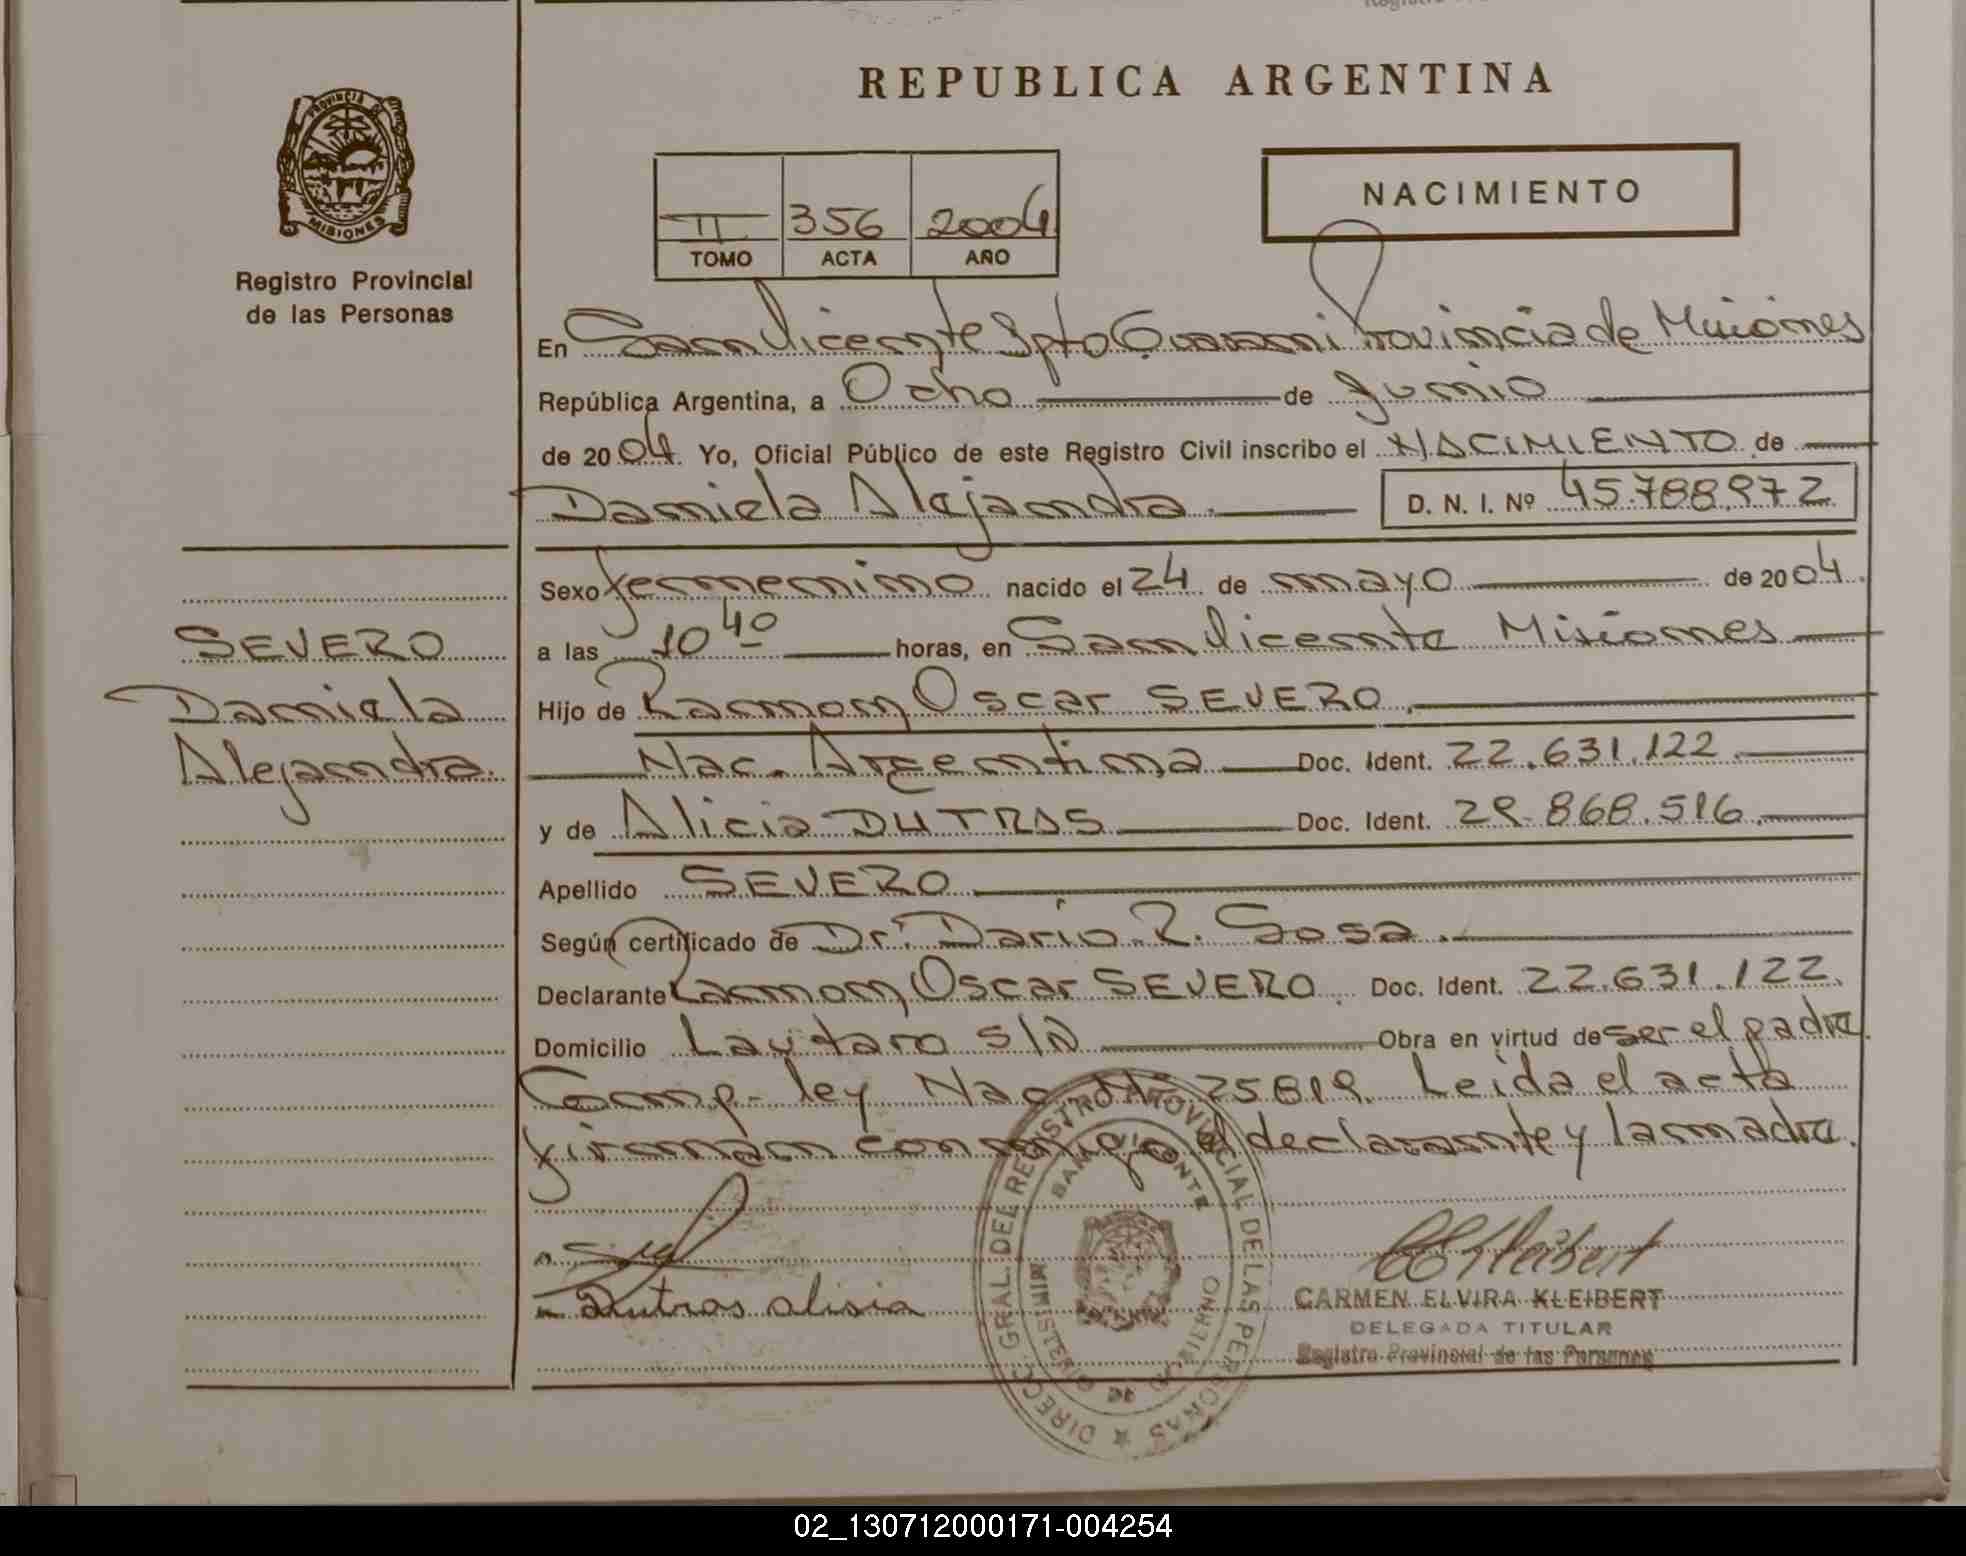 REPUBLICA ARGENTINA
PROVINCIA DE
MISIONES
Registro Provincial
de las Personas
II 356 2004
TOMO ACTA AÑO
NACIMIENTO
En San Vicente Dpto Guarani Provincia de Misiones
República Argentina, a Ocho de Junio
de 2004. Yo, Oficial Público de este Registro Civil inscribo el NACIMIENTO de
Daniela Alejandra. D. N. I. Nº 45.788.972
Sexo femenino nacido el 24 de mayo de 2004.
a las 10 40 horas, en San Vicente Misiones
Hijo de Ramon Oscar SEVERO.
Nac. Argentina Doc. Ident. 22.631.122.
y de Alicia DUTRAS Doc. Ident. 29.868.516.
Apellido SEVERO
Según certificado de Dr. Dario R. Sosa.
Declarante Ramon Oscar SEVERO. Doc. Ident. 22.631.122.
Domicilio Lautaro S/N Obra en virtud de ser el padre.
Comp. ley Nac Nº 25819. Leida el acta
firman conmigo el declarante y la madre.
SEVERO
Daniela
Alejandra.
Dutras alisia
DIRECC. GRAL. DEL REGISTRO PROVINCIAL DE LAS PERSONAS
SAN VICENTE
MINISTERIO DE GOBIERNO
CARMEN ELVIRA KLEIBERT
DELEGADA TITULAR
Registro Provincial de las Personas
02_130712000171-004254